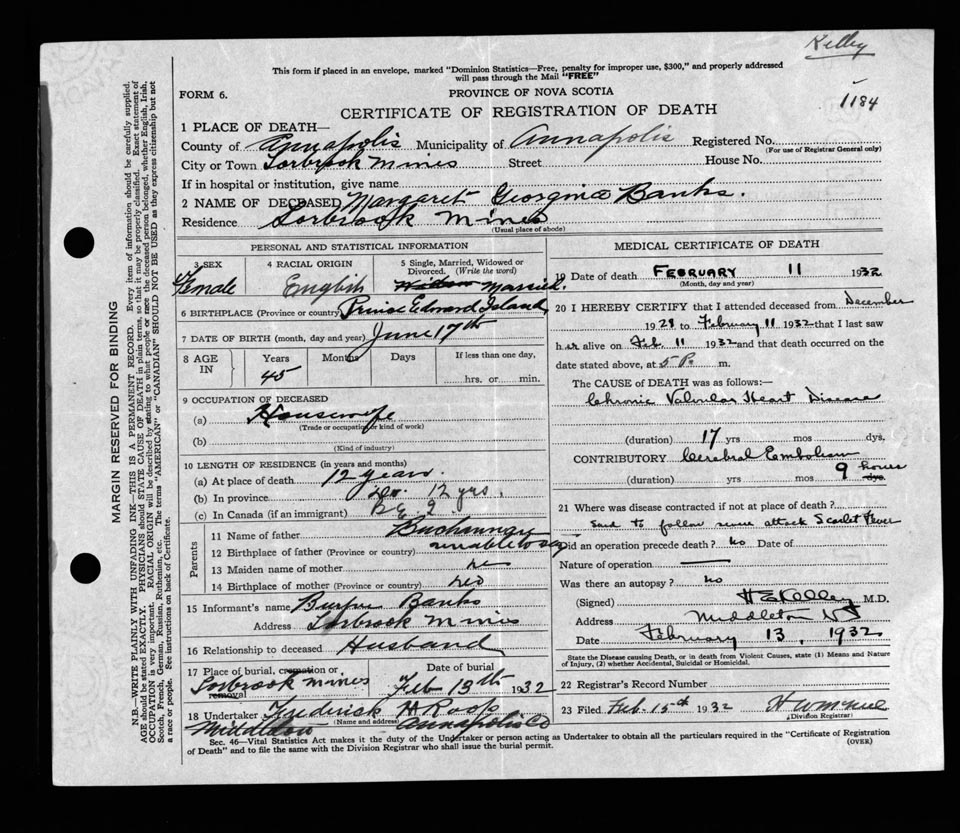 Kelley
This form if placed in an envelope, marked "Dominion Statistics—Free, penalty for improper use, $300," and properly addressed
will pass through the Mail "FREE"
FORM 6.
PROVINCE OF NOVA SCOTIA
1184
CERTIFICATE OF REGISTRATION OF DEATH
1 PLACE OF DEATH—
County of Annapolis Municipality of Annapolis Registered No.
(For use of Registrar General only)
City or Town Torbrook Mines Street House No.
If in hospital or institution, give name
2 NAME OF DECEASED Margaret Georgina Banks.
Residence Torbrook Mines
(Usual place of abode)
PERSONAL AND STATISTICAL INFORMATION
3 SEX
Female
4 RACIAL ORIGIN
English
5 Single, Married, Widowed or
Divorced. (Write the word)
Widow Married.
6 BIRTHPLACE (Province or country) Prince Edward Island
7 DATE OF BIRTH (month, day and year) June 17th
8 AGE IN
Years Months Days If less than one day,
45 hrs. or min.
9 OCCUPATION OF DECEASED
(a) Housewife
(Trade or occupation or kind of work)
(b)
(Kind of industry)
10 LENGTH OF RESIDENCE (in years and months)
(a) At place of death 12 years.
(b) In province 12 yrs.
(c) In Canada (if an immigrant)
Parents
11 Name of father
12 Birthplace of father (Province or country) unable to say
13 Maiden name of mother
14 Birthplace of mother (Province or country)
15 Informant's name Burpee Banks
Address Torbrook Mines
16 Relationship to deceased Husband
17 Place of burial, cremation or removal
Torbrook Mines
Date of burial
Feb 13th 1932
18 Undertaker Frederick H Roop
(Name and address)
Annapolis Co
MEDICAL CERTIFICATE OF DEATH
19 Date of death FEBRUARY 11 1932
(Month, day and year)
20 I HEREBY CERTIFY that I attended deceased from December
1928 to February 11 1932 that I last saw
her alive on Feb. 11 1932 and that death occurred on the
date stated above, at 5 P. m.
The CAUSE OF DEATH was as follows:
Chronic Valvular Heart Disease
(duration) 17 yrs mos dys.
CONTRIBUTORY Cerebral Embolism
(duration) yrs mos 9 hours dys.
21 Where was disease contracted if not at place of death?
Said to follow severe attack Scarlet Fever
Did an operation precede death? no Date of
Nature of operation
Was there an autopsy? no
(Signed) H E Kelley M.D.
Address Middleton NS
Date February 13, 1932
State the Disease causing Death, or in death from Violent Causes, state (1) Means and Nature
of Injury, (2) whether Accidental, Suicidal or Homicidal.
22 Registrar's Record Number
23 Filed Feb. 15th 1932
(Division Registrar)
Sec. 46—Vital Statistics Act makes it the duty of the Undertaker or person acting as Undertaker to obtain all the particulars required in the "Certificate of Registration
of Death" and to file the same with the Division Registrar who shall issue the burial permit.
(OVER)
MARGIN RESERVED FOR BINDING
N.B.—WRITE PLAINLY WITH UNFADING INK—THIS IS A PERMANENT RECORD. Every item of information should be carefully supplied.
AGE should be stated EXACTLY. PHYSICIANS should STATE CAUSE OF DEATH in plain terms, so that it may be properly classified. Exact statement of
OCCUPATION is very important. RACIAL ORIGIN will be described by stating to what people or race the deceased person belonged, whether English, Irish,
Scotch, French, German, Russian, Ruthenian, etc. The terms "AMERICAN" or "CANADIAN" SHOULD NOT BE USED as they express citizenship but not
a race or people. See instructions on back of Certificate.